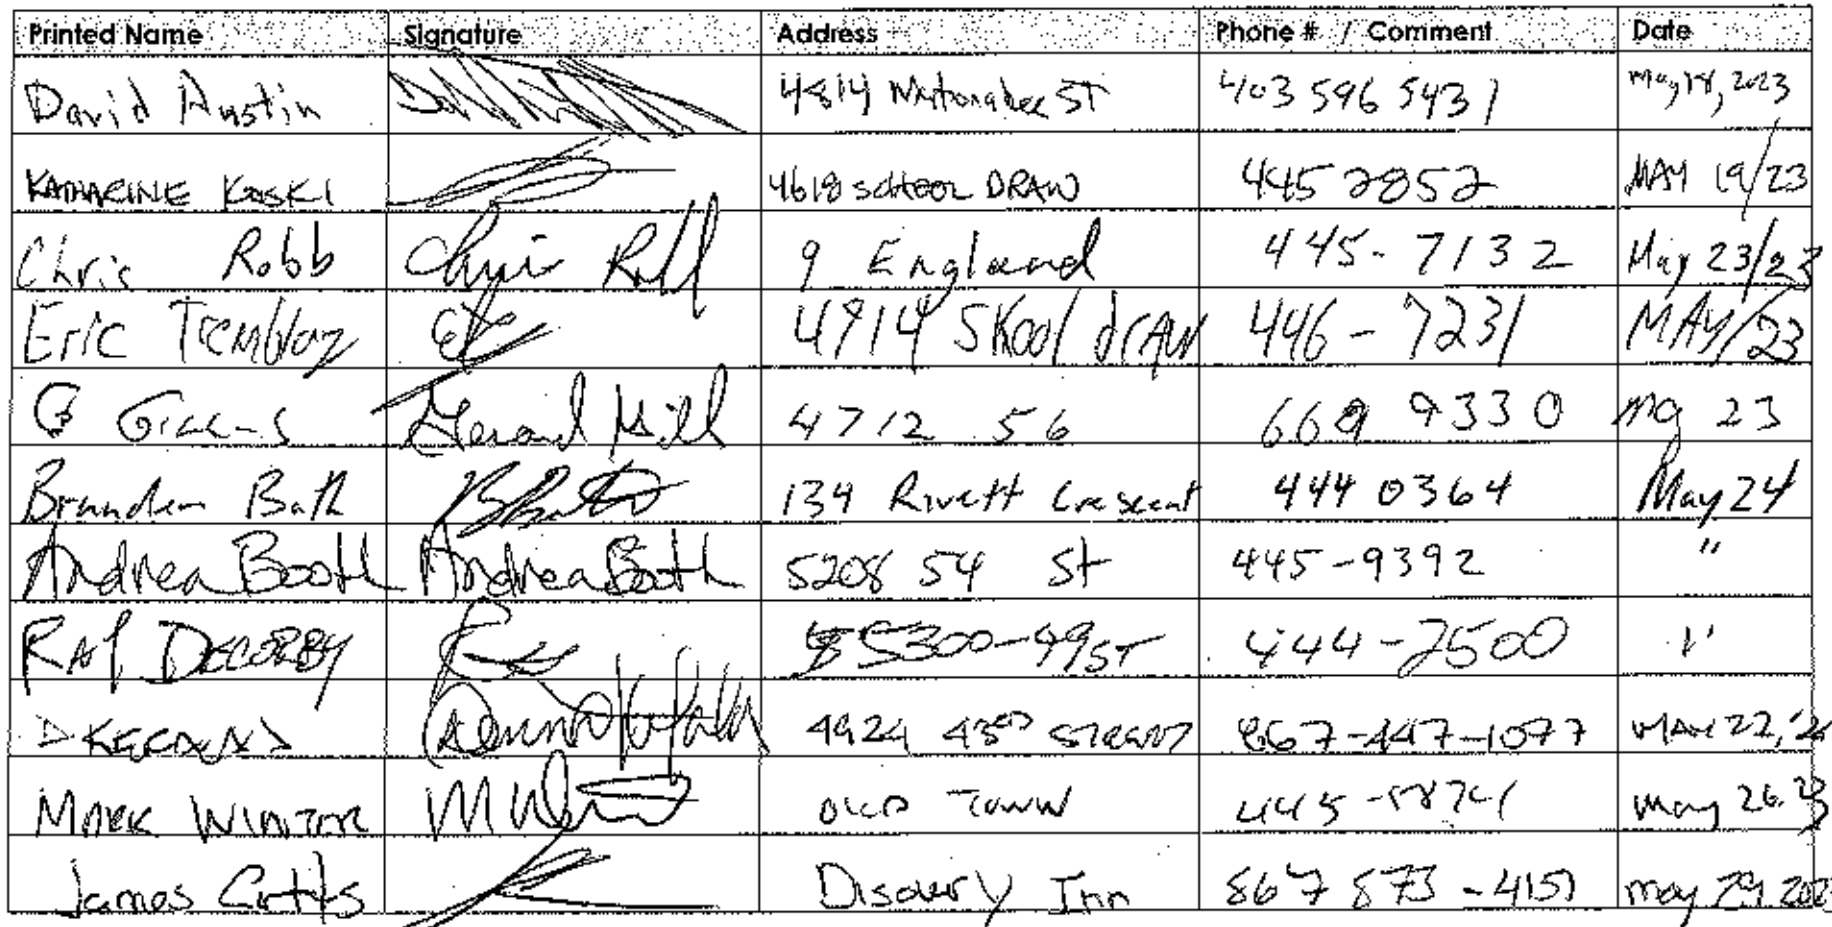 Printed Name Signature Address Phone # / Comment Date
David Austin 4814 ST 403 596 5431 May 18, 2023
KATHARINE KOSKI 4618 SCHOOL DRAW 445 2852 MAY 19/23
Chris Robb Chris Robb 9 England 445-7132 May 23/23
Eric Tremblay 4914 Skool drAw 446-7231 MAY/23
G 4712 56 669 9330 23
Branden Bath 134 Rivett Crescent 444 0364 May 24
Andrea Booth Andrea Booth 5208 54 St 445-9392 "
DECORBY 5300-49 ST 444-7500 "
D 4924 43RD STREET 867-447-1077 MAY 22,
MARK WINTER OLD TOWN 445- May 26
James Discovery Inn 867 873-4151 May 29 2023